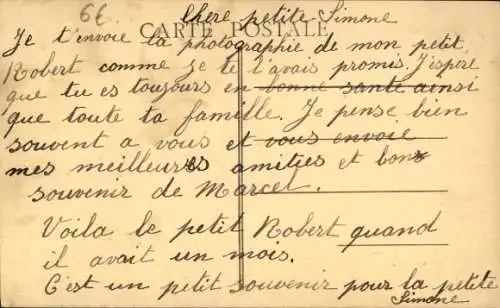 6€
Chere petite Simone
CARTE POSTALE
Je t'envoie la photographie de mon petit
Robert comme je te l'avais promis. J'espère
que tu es toujours en bonne santé ainsi
que toute ta famille. Je pense bien
souvent a vous et vous envoie
mes meilleures amities et bons
souvenir de Marcel.
Voila le petit Robert quand
il avait un mois.
C'est un petit souvenir pour la petite
Simone